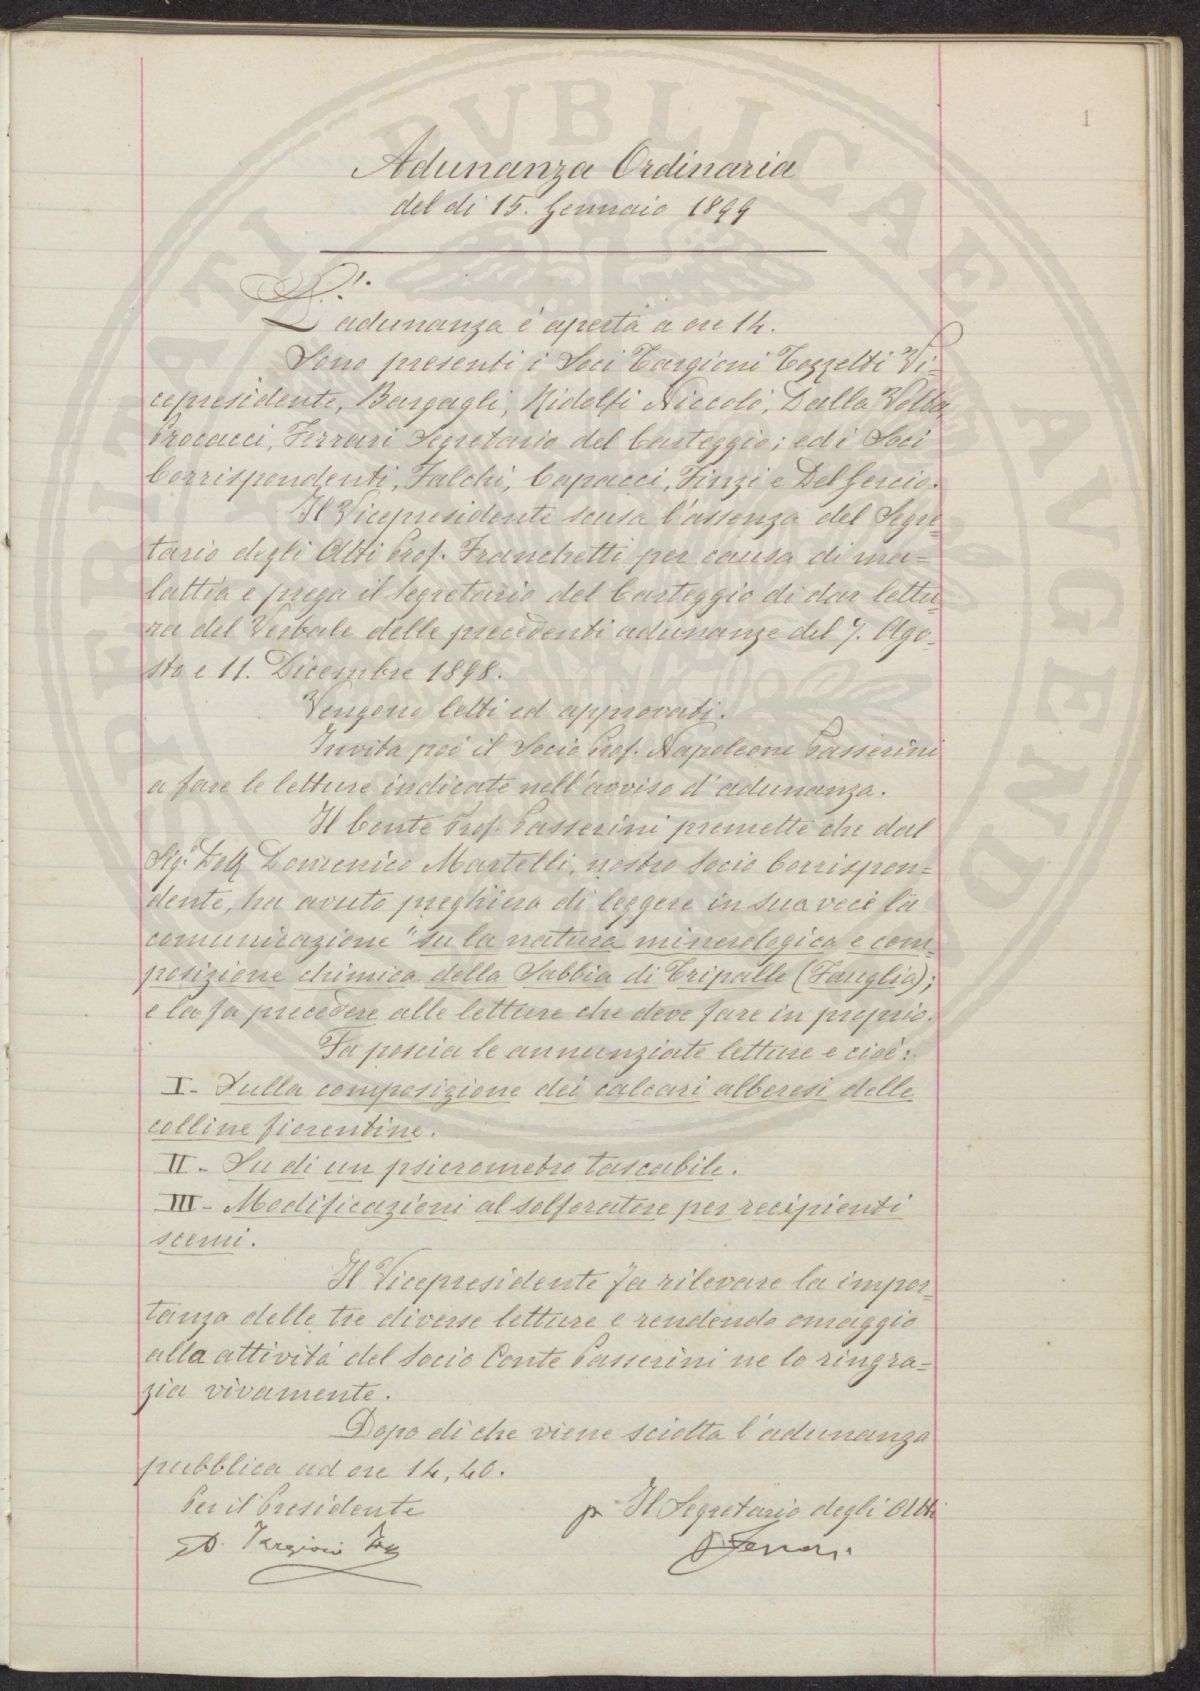 1
Adunanza Ordinaria
del dì 15. Gennaio 1899
L'adunanza è aperta a ore 14.
Sono presenti i Soci Targioni Tozzetti Vi-
cepresidente, Bargagli, Ridolfi Niccolò, Dalla Volta
Procacci, Ferrari Segretario del Carteggio; ed i Soci
Corrispondenti, Falchi, Capacci, Finzi e Del Guercio.
Il Vicepresidente scusa l'assenza del Segre-
tario degli Atti Prof. Franchetti per causa di ma=
lattia e prega il Segretario del Carteggio di dar lettu-
ra del Verbale delle precedenti adunanze del 7. Ago-
sto e 11. Dicembre 1898.
Vengono letti ed approvati.
Invita poi il Socio Prof. Napoleone Passerini
a fare le letture indicate nell'avviso d'adunanza.
Il Conte Prof. Passerini premette che dal
Sig. Dott. Domenico Martelli, nostro Socio Corrispon=
dente, ha avuto preghiera di leggere in sua vece la
comunicazione "su la natura minerologica e com-
posizione chimica della Sabbia di Tripalle (Fauglia);
e la fa precedere alle letture che deve fare in proprio.
Fa poscia le annunziate letture e cioè:
I- Sulla composizione dei calcari alberesi delle
colline fiorentine.
II- Su di un psicrometro tascabile.
III- Modificazioni al solforatore per recipienti
scemi.
Il Vicepresidente fa rilevare la impor-
tanza delle tre diverse letture e rendendo omaggio
alla attività del Socio Conte Passerini ne lo ringra=
zia vivamente.
Dopo di che viene sciolta l'adunanza
pubblica ad ore 14,40.
Per il Presidente
p Il Segretario degli Atti
Targioni Toz
Ferrari
SPERITATI PVBLICAE AVGENDAE